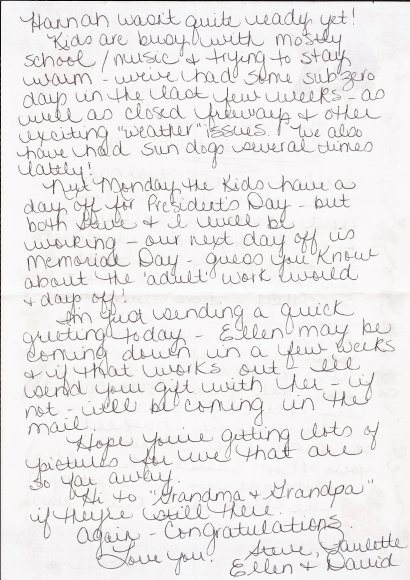 Hannah wasn't quite ready yet!
Kids are busy with mostly
school/music & trying to stay
warm - we've had some sub zero
days in the last few weeks - as
well as closed freeways & other
exciting "weather" issues. We also
have had sun dogs several times
lately!
Next Monday the kids have a
day off for President's Day - but
both Steve & I will be
working - our next day off is
Memorial Day - guess you know
about the "adult" work world
& days off!
I'm just sending a quick
greeting today - Ellen may be
coming down in a few weeks
& if that works out - I'll
send your gift with her - if
not - will be coming in the
mail.
Hope you're getting lots of
pictures for we that are
so far away.
Hi to "Grandma & Grandpa"
if they're still there.
Again - Congratulations.
Love you. Steve, Paulette
Ellen & David